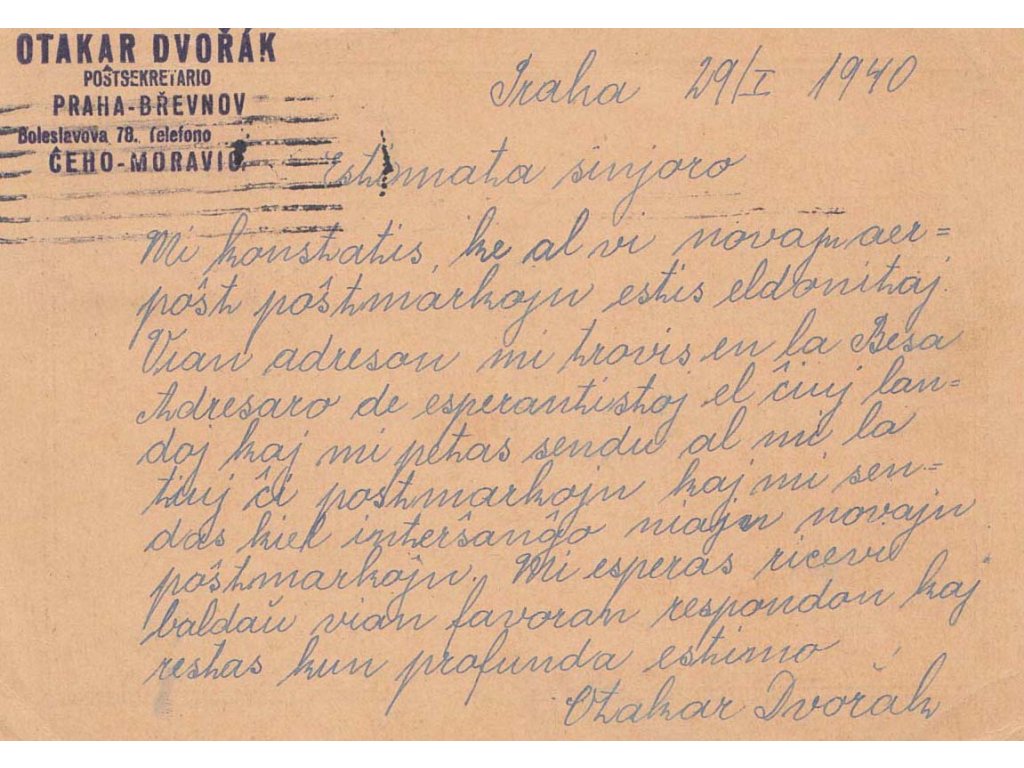 OTAKAR DVOŘÁK
POŜTSEKRETARIO
PRAHA-BŘEVNOV
Boleslavova 78. Telefono
ĈEHO-MORAVIO
Praha 29/I 1940
Estimata sinjoro
Mi konstatis, ke al vi novajn aer=
poŝt poŝtmarkojn estis eldonitaj.
Vian adreson mi trovis en la Besa
Adresaro de esperantistoj el ĉiuj lan=
doj kaj mi petas sendu al mi la
tiuj ĉi postmarkojn kaj mi sen=
das kiel interŝanĝo niajn novajn
poŝtmarkojn. Mi esperas ricevi
baldaŭ vian favoran respondon kaj
restas kun profunda estimo
Otakar Dvořák